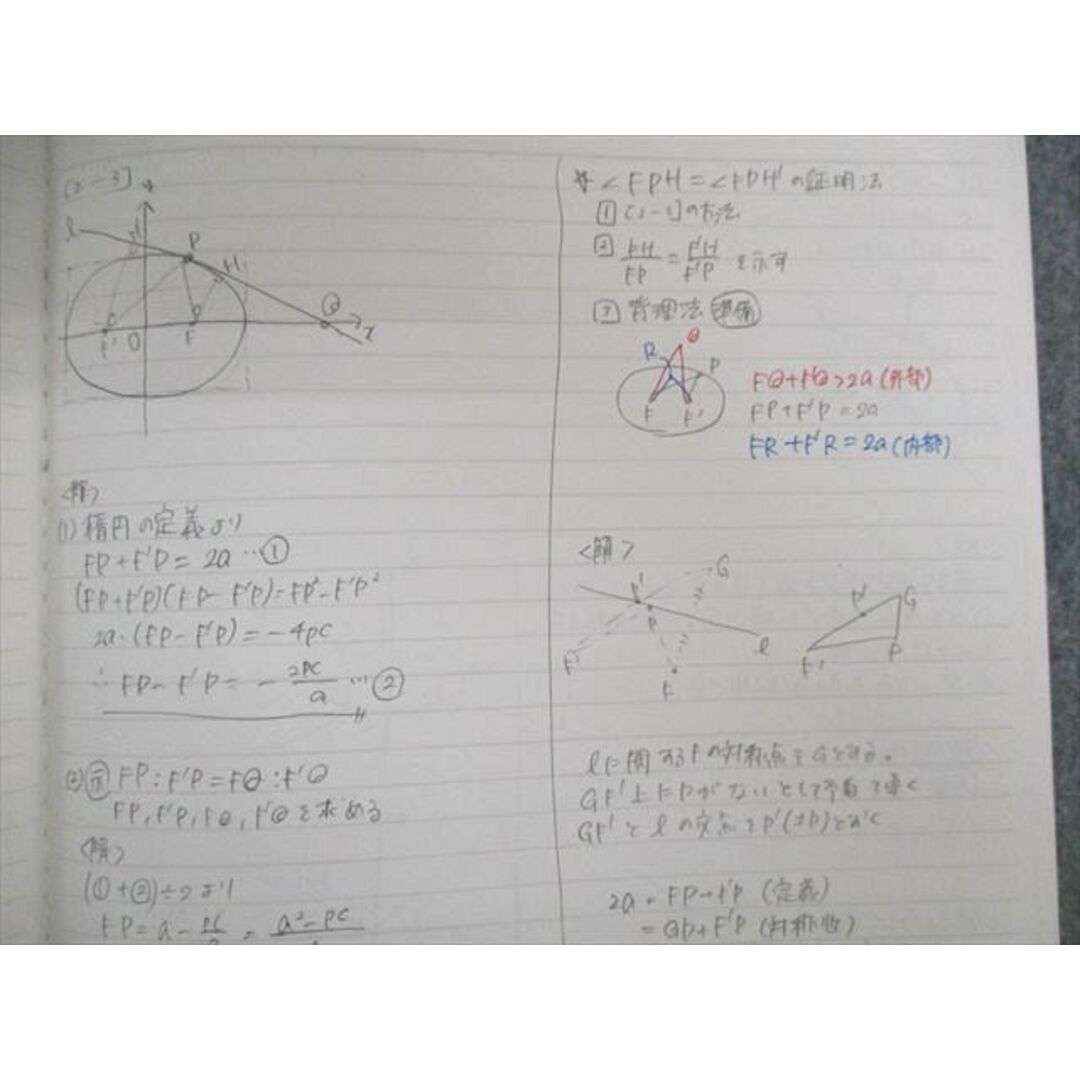 [2-3]
l
P
H
Q
F'
O
F
x
<解>
(1) 楕円の定義より
FP+F'P = 2a …①
(FP+F'P)(FP-F'P)=FP²-F'P²
2a・(FP-F'P)=-4pc
∴ FP-F'P = -2pc/a …②
(2) 示 FP:F'P=FQ:F'Q
FP, F'P, FQ, F'Qを求める
<解>
(①+②)÷2より
FP = a - pc/a = a²-pc
∠FPH=∠F'PH'の証明法
① [2-3]の方法
② FH/FP = F'H'/F'P を示す
③ 背理法 準備
R
Q
P
F
F'
FQ+F'Q>2a (外部)
FP+F'P=2a
FR+F'R=2a (内部)
<解>
P'
G
P
l
F'
F
P'
G
F'
P
lに関するFの対称点をGとする。
GF'上にPがないとして矛盾を導く
GF'とlの交点をP'(≠P)とおく
2a = FP+F'P (定義)
= GP+F'P (対称性)